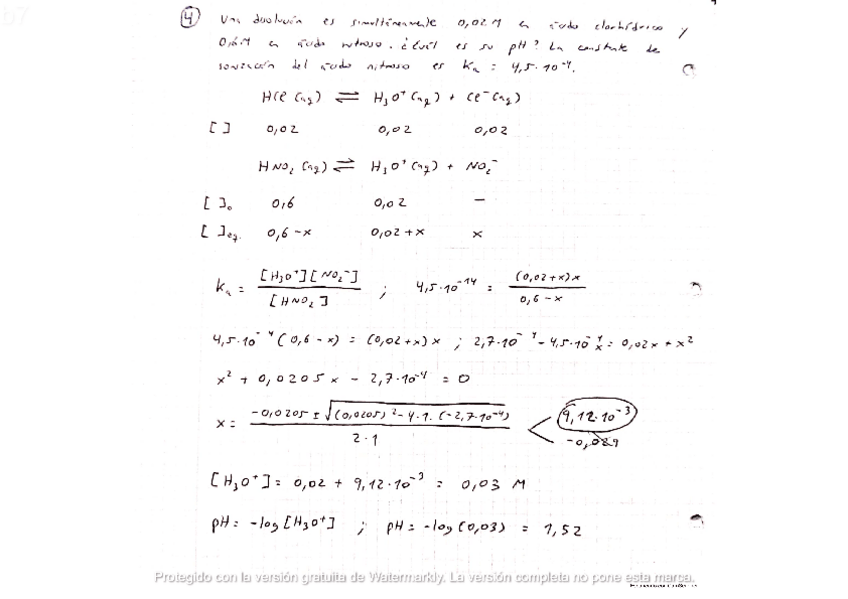 67
④ Una disolución es simultáneamente 0,02 M en ácido clorhídrico y
0,6 M en ácido nitroso. ¿Cuál es su pH? La constante de
ionización del ácido nitroso es Ka = 4,5·10⁻⁴.
HCl (aq) ⇌ H₃O⁺ (aq) + Cl⁻ (aq)
[ ] 0,02 0,02 0,02
HNO₂ (aq) ⇌ H₃O⁺ (aq) + NO₂⁻
[ ]₀ 0,6 0,02 —
[ ]eq. 0,6 -x 0,02 +x x
Ka = [H₃O⁺][NO₂⁻] / [HNO₂] ; 4,5·10⁻¹⁴ = (0,02+x)x / 0,6 -x
4,5·10⁻⁴ (0,6 -x) = (0,02+x) x ; 2,7·10⁻⁴ - 4,5·10⁻⁴x = 0,02x + x²
x² + 0,0205 x - 2,7·10⁻⁴ = 0
x = -0,0205 ± √(0,0205)² - 4·1·(-2,7·10⁻⁴) / 2·1 < 9,12·10⁻³
-0,029
[H₃O⁺] = 0,02 + 9,12·10⁻³ = 0,03 M
pH = -log [H₃O⁺] ; pH = -log (0,03) = 1,52
Protegido con la versión gratuita de Watermarkly. La versión completa no pone esta marca.